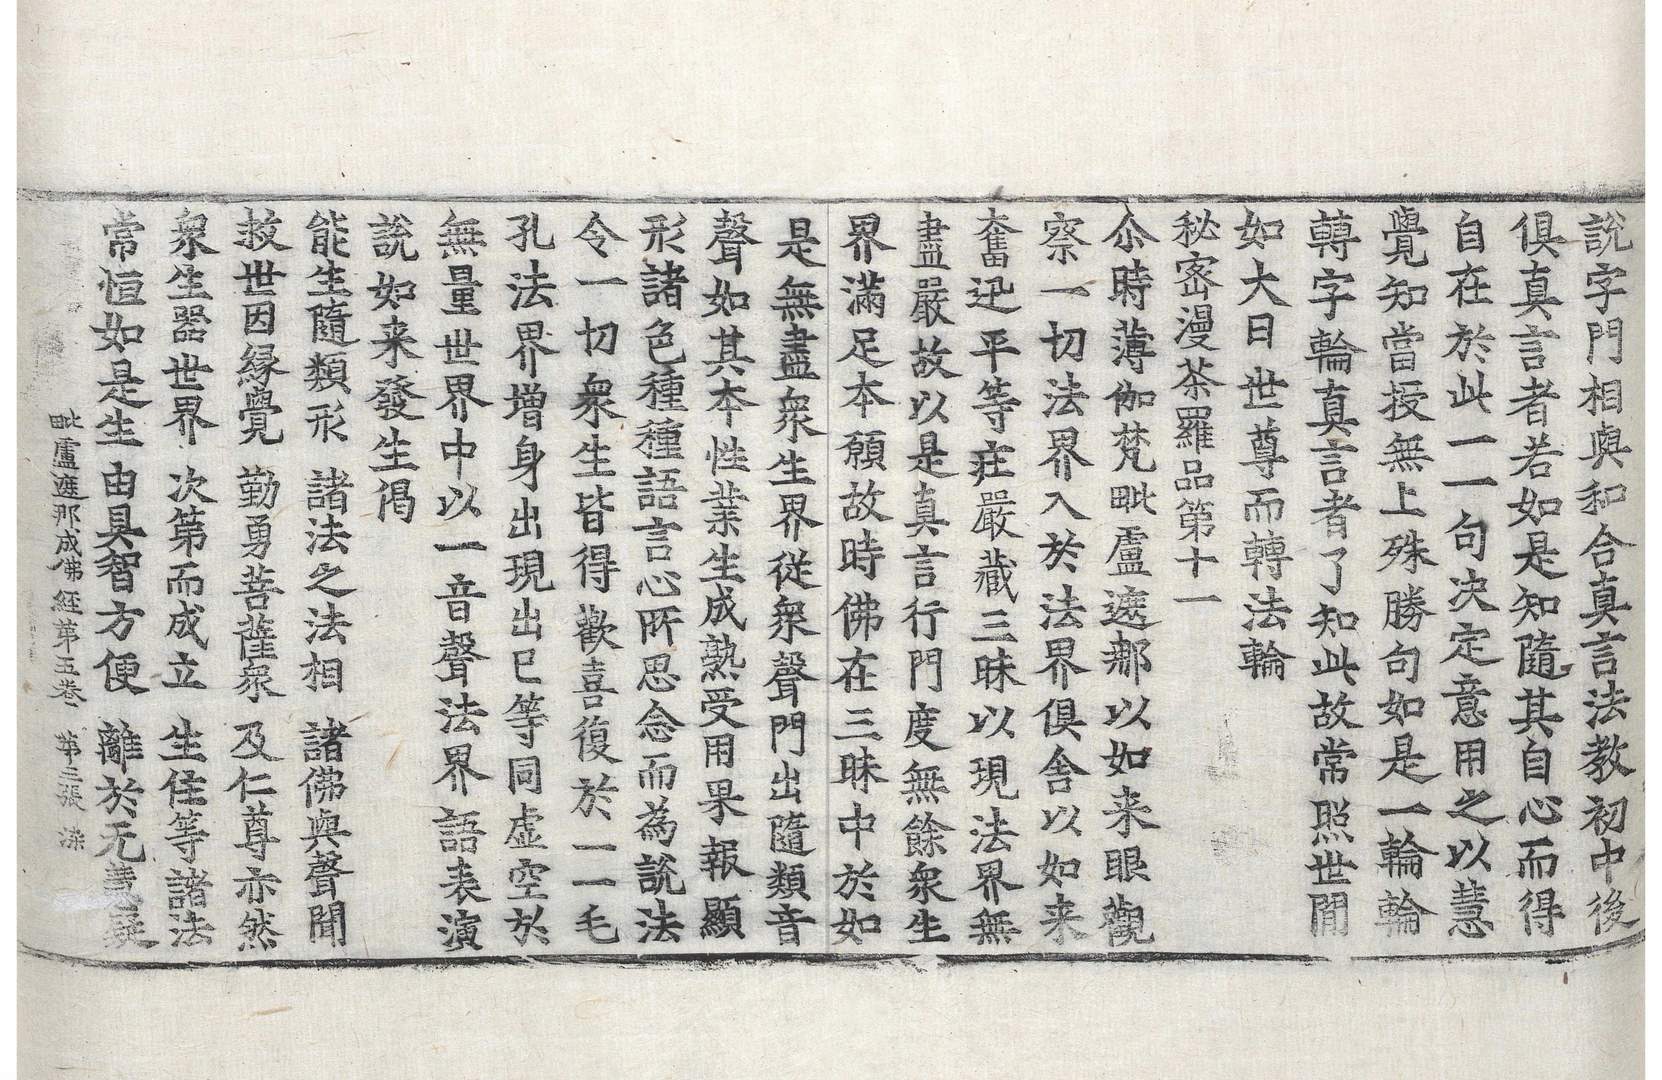 說字門相與和合真言法教初中後
俱真言者若如是知隨其自心而得
自在於此一一句决定意用之以慧
覺知當授無上殊勝句如是一輪輪
轉字輪真言者了知此故常照世間
如大日世尊而轉法輪
秘密漫荼羅品第十一
尒時薄伽梵毗盧遮那以如来眼觀
察一切法界入於法界俱舍以如来
奮迅平等莊嚴藏三昧以現法界無
盡嚴故以是真言行門度無餘衆生
界滿足本願故時佛在三昧中於如
是無盡衆生界從衆聲門出隨類音
聲如其本性業生成熟受用果報顯
形諸色種種語言心所思念而為說法
令一切衆生皆得歡喜復於一一毛
孔法界增身出現出已等同虛空於
無量世界中以一音聲法界語表演
說如来發生偈
能生隨類形　諸法之法相　諸佛與聲聞
救世因緣覺　勤勇菩薩衆　及仁尊亦然
衆生器世界　次第而成立　生住等諸法
常恒如是生　由具智方便　離於无慧疑
毗盧遮那成佛經第五卷　第三張　染